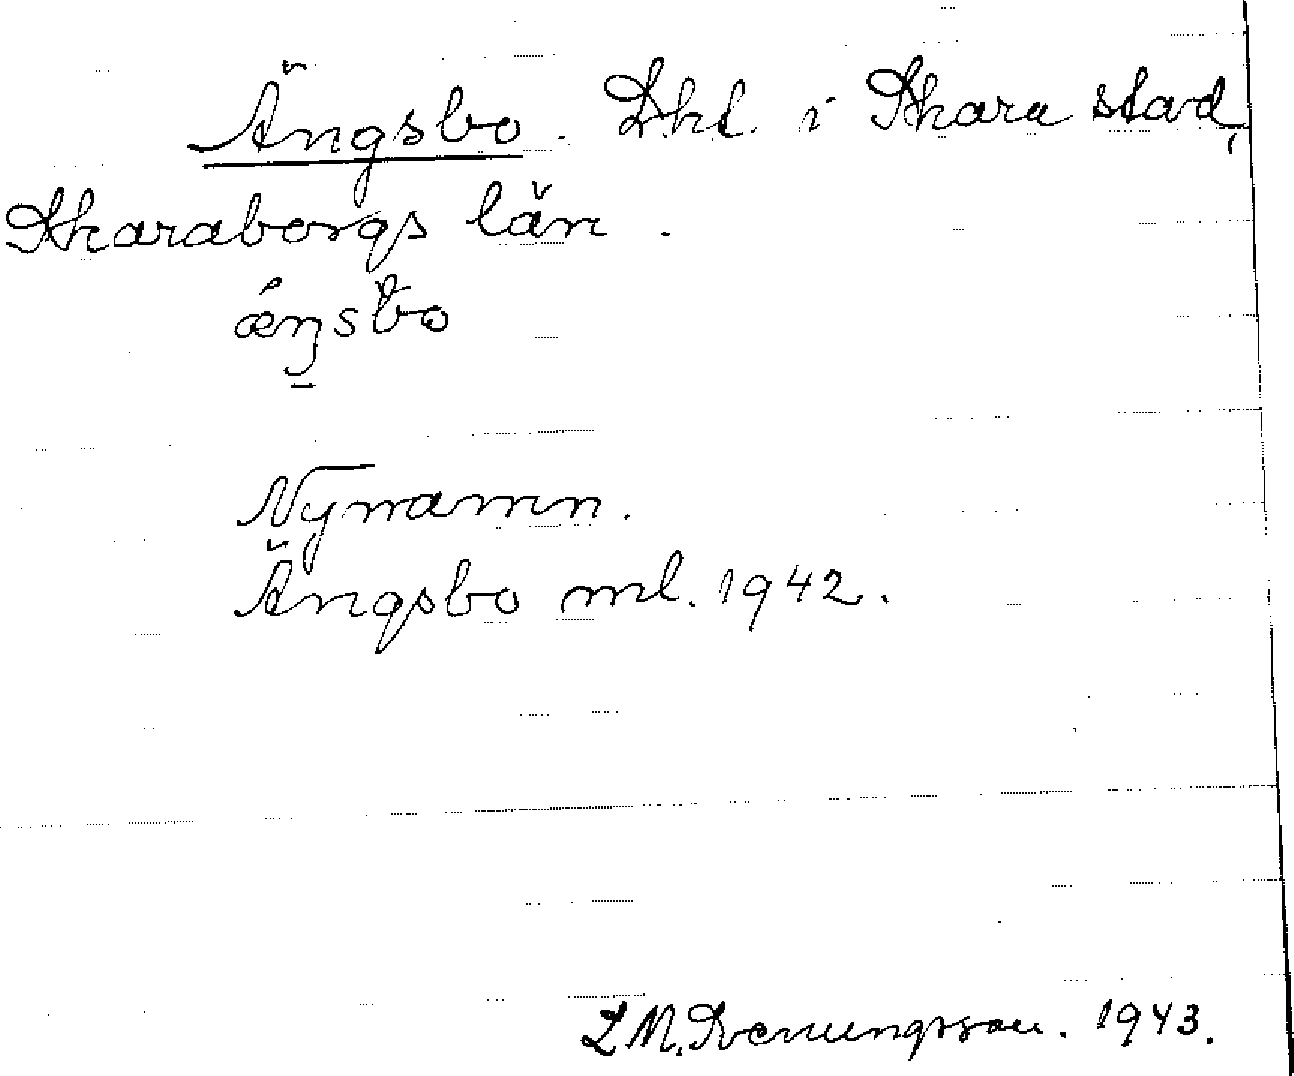 Ängsbo. Lht. i Skara stad,
Skaraborgs län.
ǽŋsbo
Nynamn.
Ängsbo ml. 1942.
L M. Svenungsson. 1943.